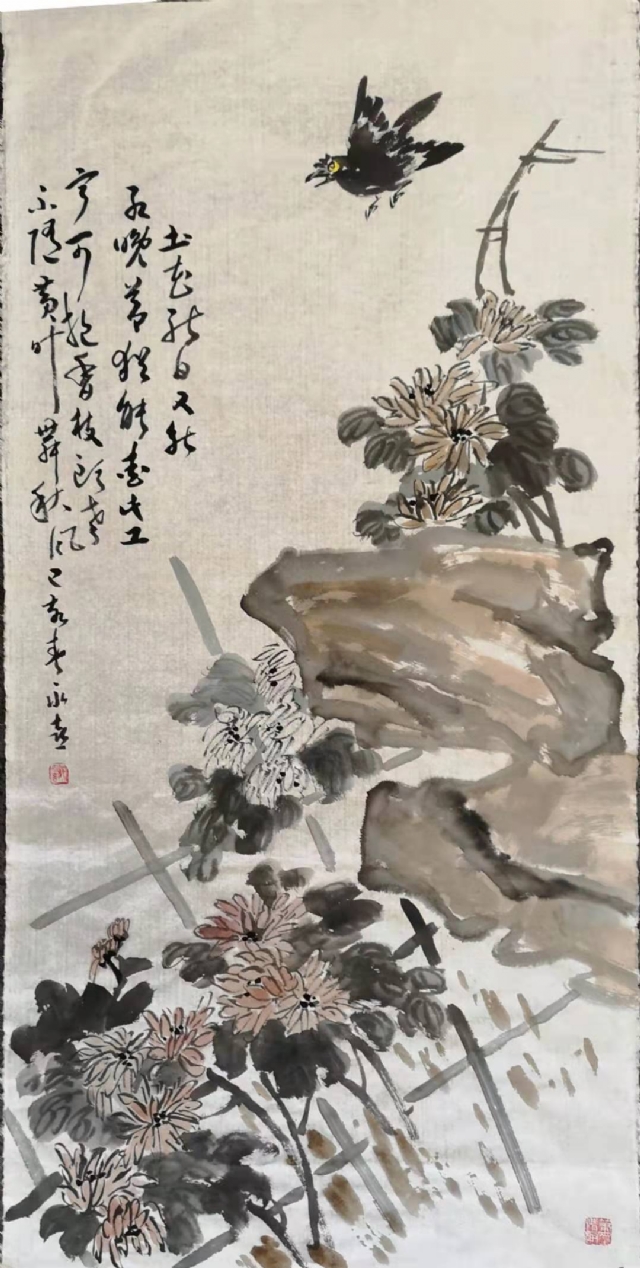 土花能白又能
红晚节犹能爱此工
宁可抱香枝头老
不随黄叶舞秋风己亥春永